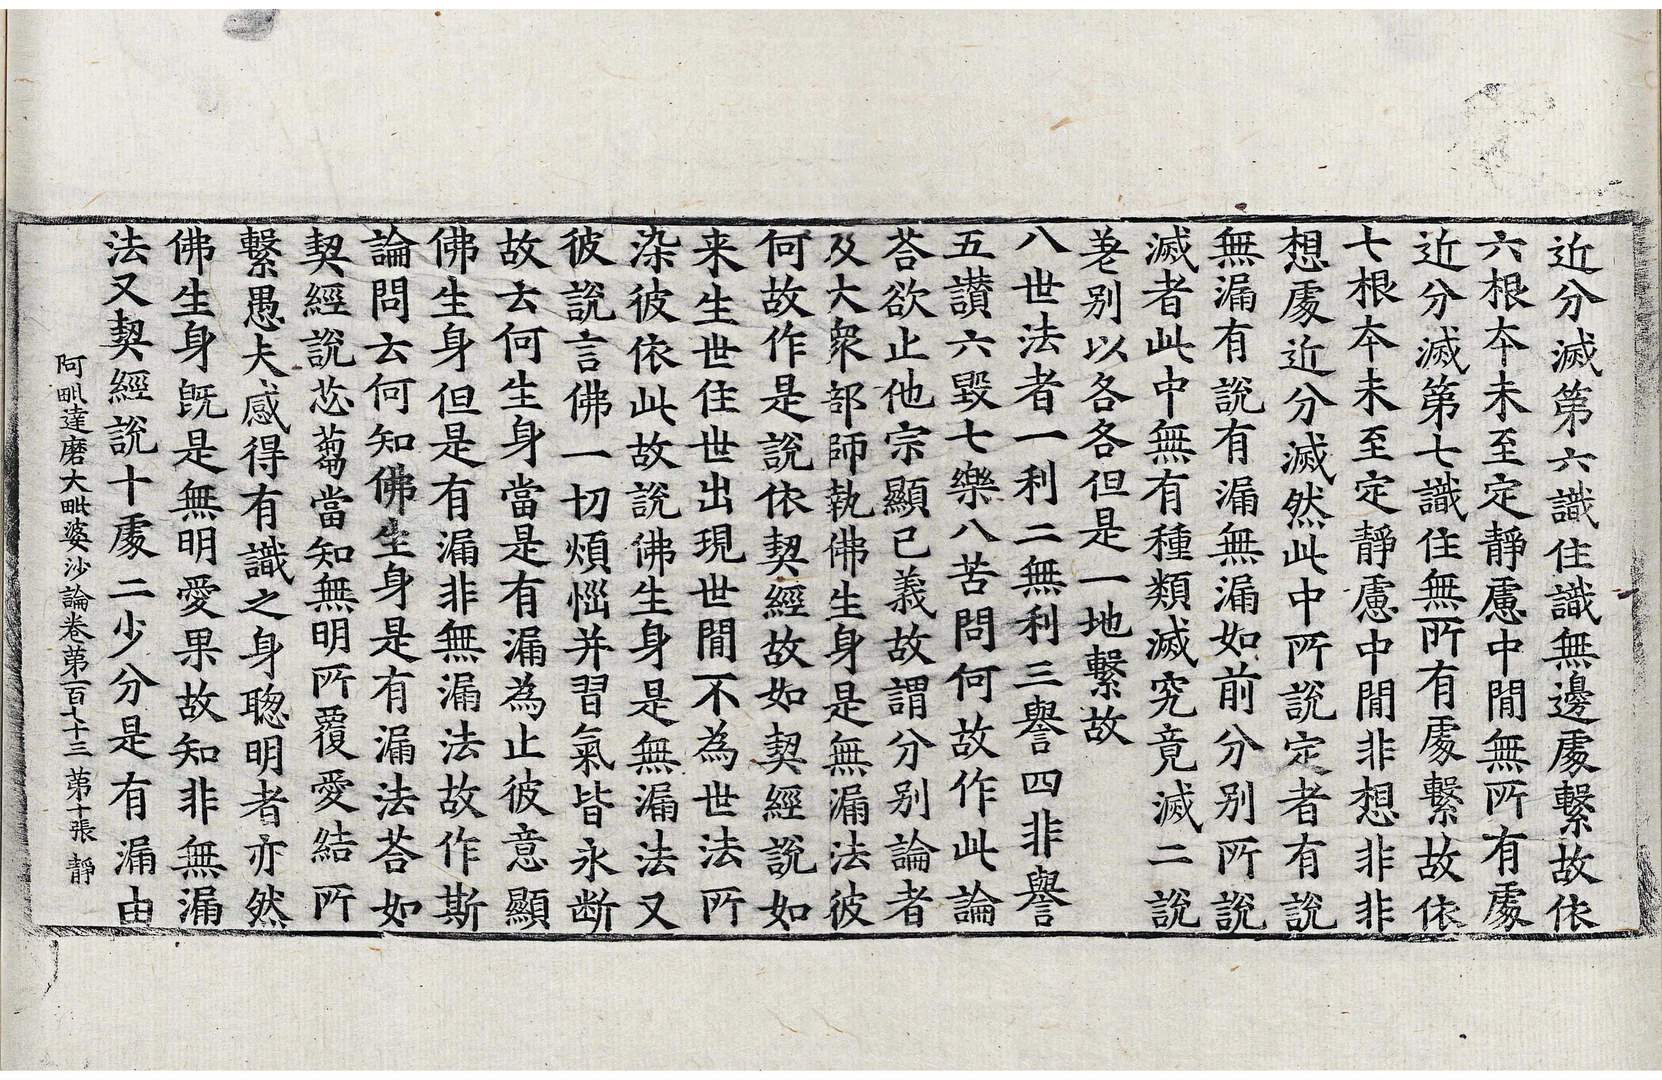 近分滅第六識住識無邊處繫故依
六根本未至定靜慮中閒無所有處
近分滅第七識住無所有處繫故依
七根本未至定靜慮中閒非想非非
想處近分滅然此中所說定者有說
無漏有說有漏無漏如前分別所說
滅者此中無有種類滅究竟滅二說
差別以各各但是一地繫故
八世法者一利二無利三譽四非譽
五讃六毀七樂八苦問何故作此論
荅欲止他宗顯已義故謂分別論者
及大衆部師執佛生身是無漏法彼
何故作是說依契經故如契經說如
来生世住世出現世閒不為世法所
染彼依此故說佛生身是無漏法又
彼說言佛一切煩惱并習氣皆永断
故云何生身當是有漏為止彼意顯
佛生身但是有漏非無漏法故作斯
論問云何知佛生身是有漏法荅如
契經說苾蒭當知無明所覆愛結所
繫愚夫感得有識之身聦明者亦然
佛生身旣是無明愛果故知非無漏
法又契經說十處二少分是有漏由
阿毗達磨大毗婆沙論卷第一百七十三 第十張 靜